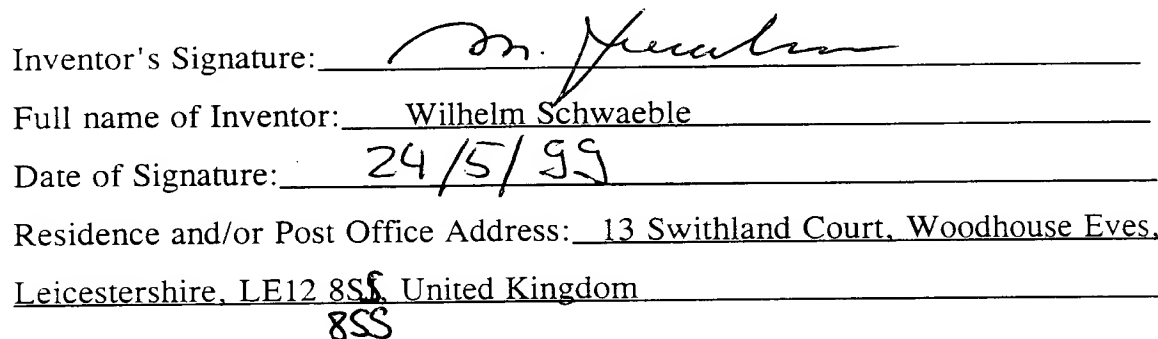 Inventor's Signature:
Full name of Inventor: Wilhelm Schwaeble
Date of Signature: 24/5/99
Residence and/or Post Office Address: 13 Swithland Court, Woodhouse Eves,
Leicestershire, LE12 8SS, United Kingdom
8SS